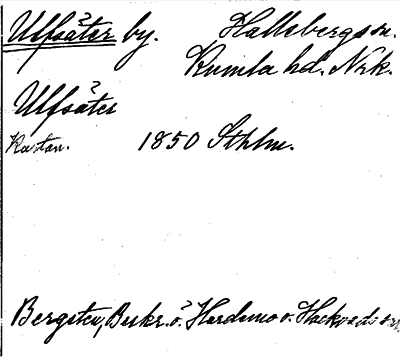 Ulfsäter by. Hallsbergs sn.
Kumla hd. Nrk.
Ulfsäter
Kartan. 1850 Sthlm.
Bergsten, Beskr. ö. Hardemo o. Hackvads sn.